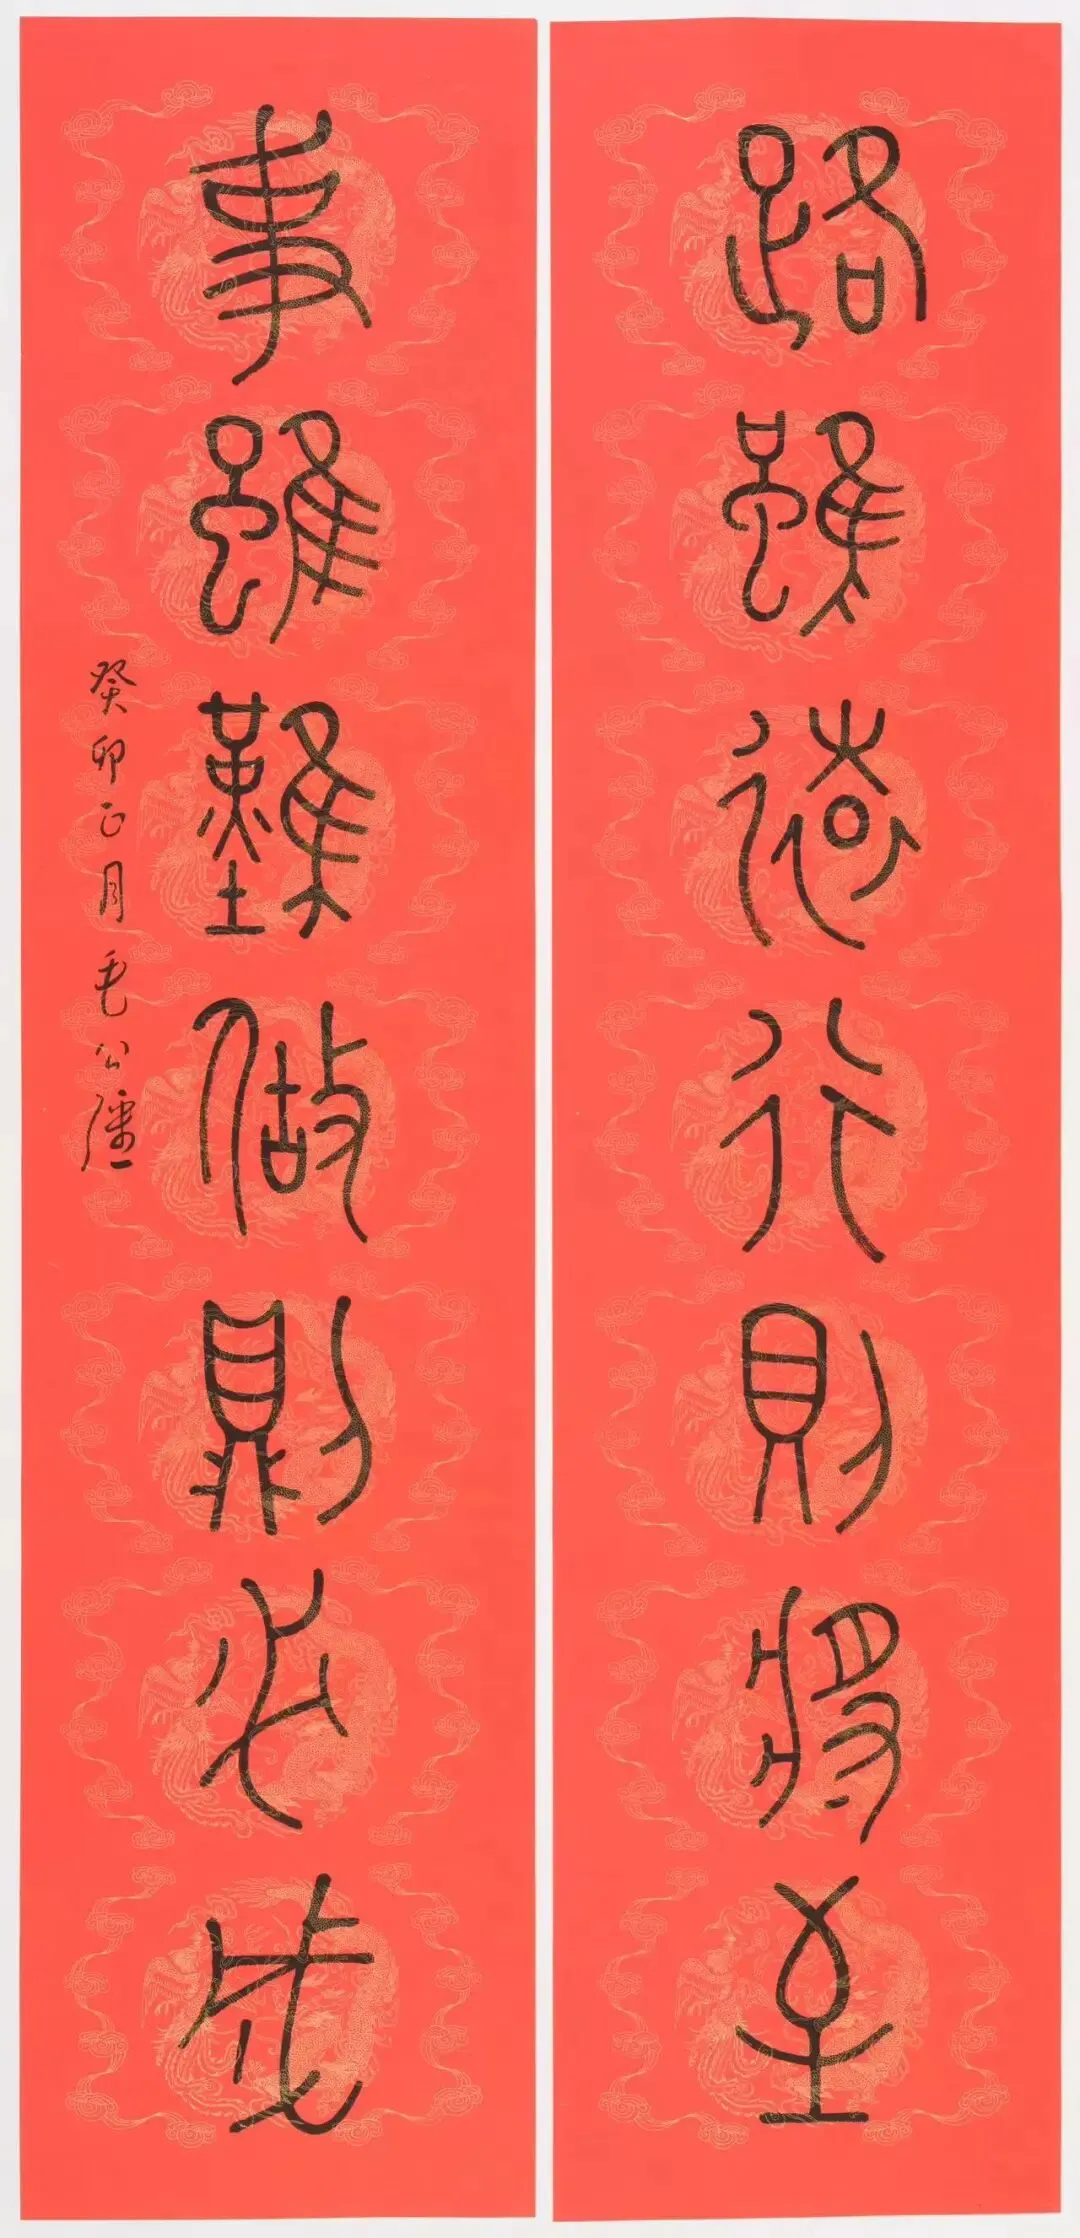 路雖遠行則將至
事雖難做則必成
癸卯正月毛公彊